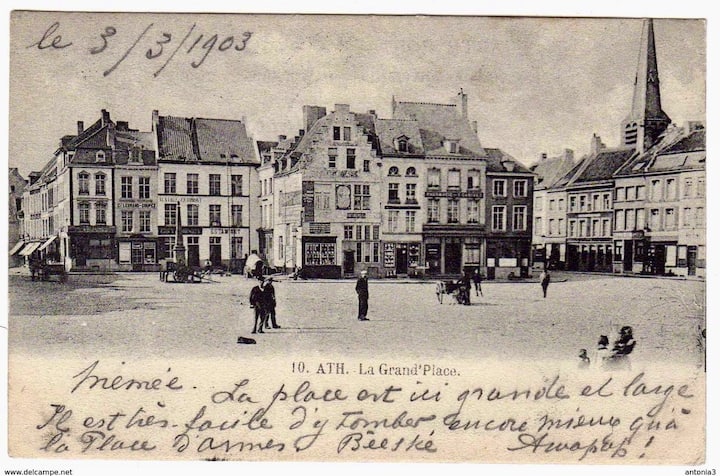 le 3/3/1903
10. ATH. La Grand'Place.
Mémée. La place est ici grande et large
Il est très-facile d'y tomber encore mieux qu'à
la Place d'armes
© www.delcampe.net
antonia3